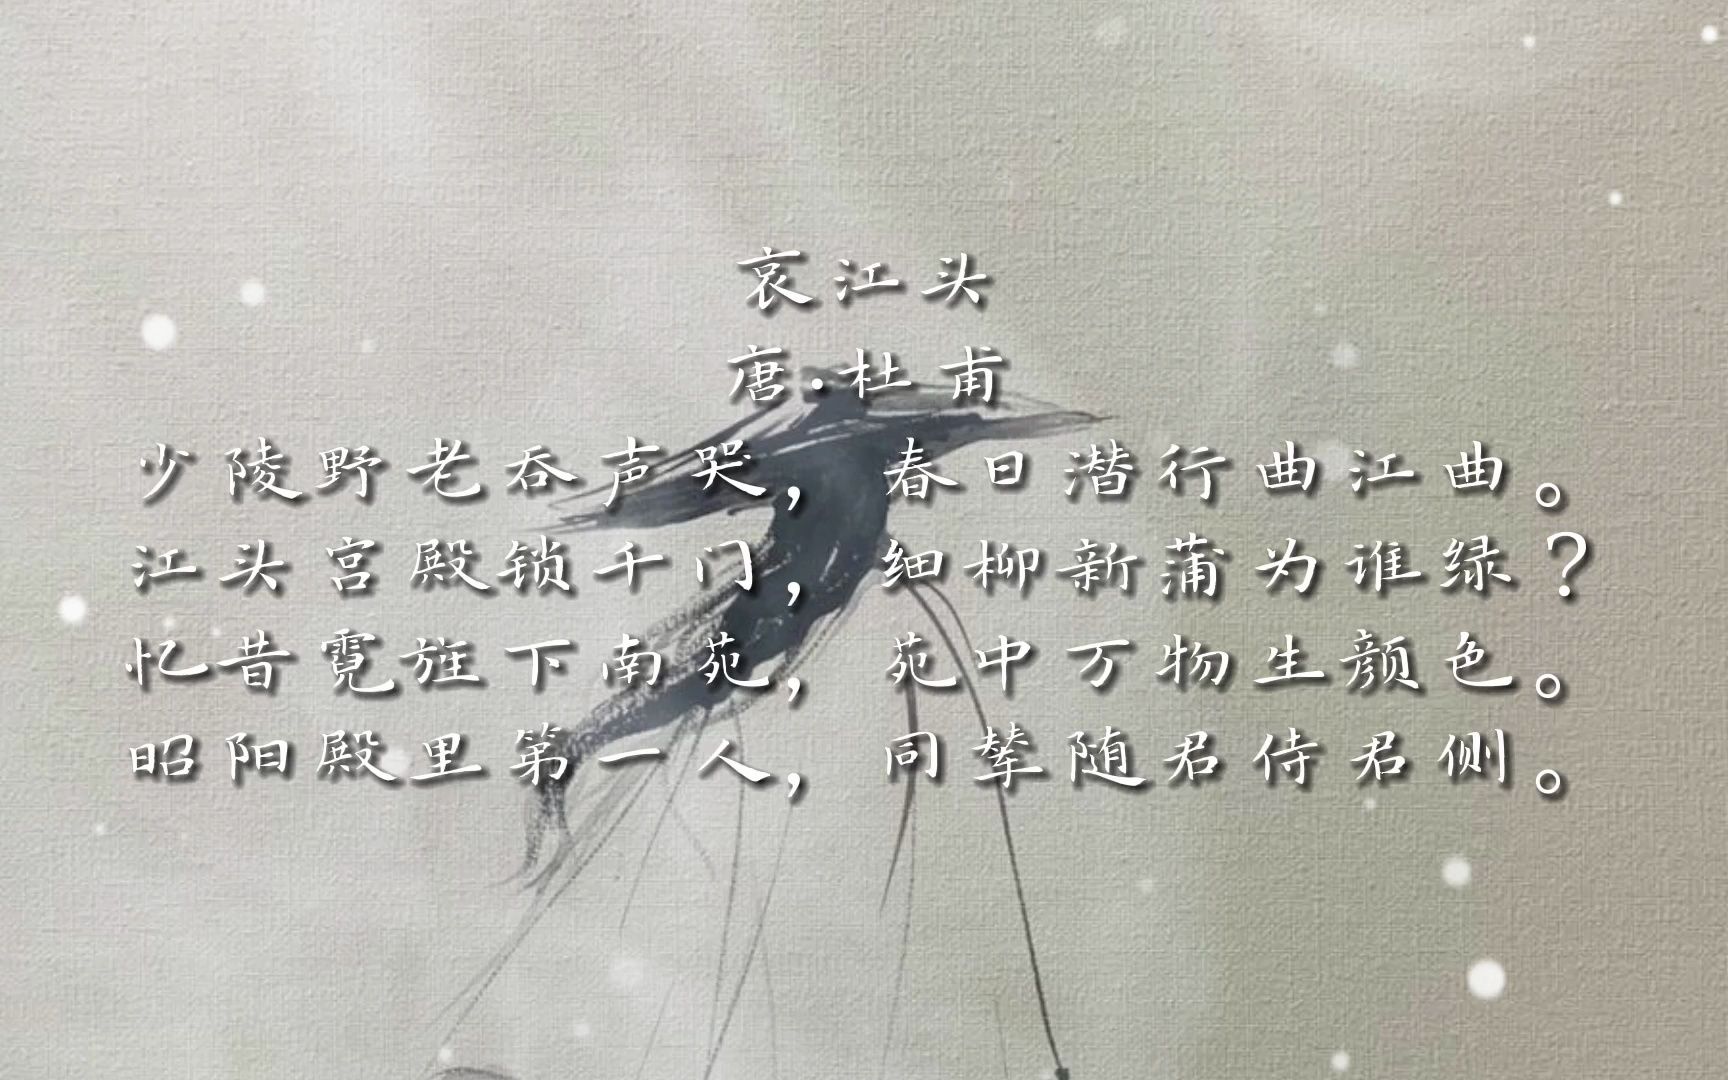 哀江头
唐·杜甫
少陵野老吞声哭，春日潜行曲江曲。
江头宫殿锁千门，细柳新蒲为谁绿？
忆昔霓旌下南苑，苑中万物生颜色。
昭阳殿里第一人，同辇随君侍君侧。